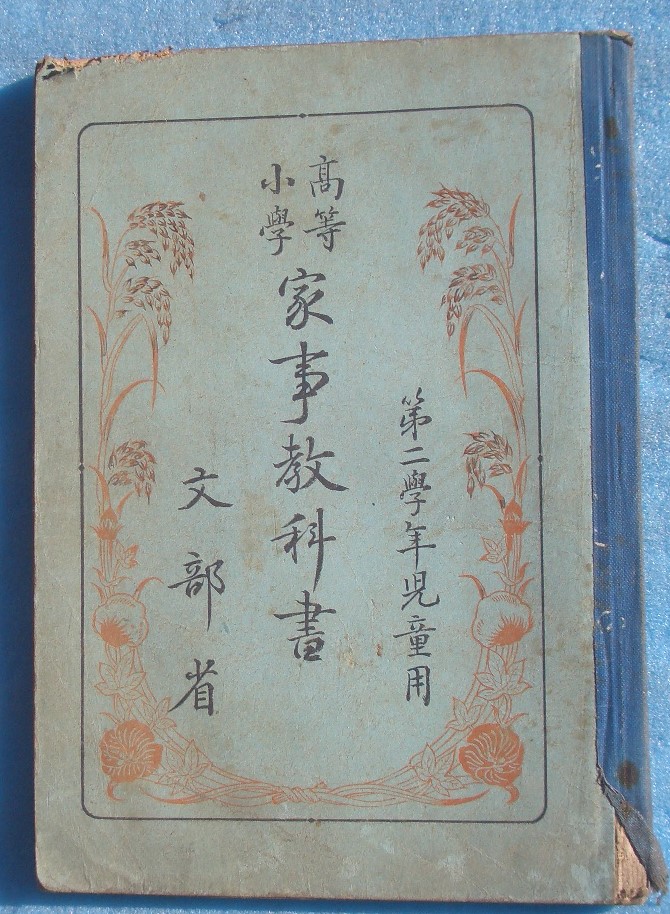 第二學年児童用
高等小學
家事教科書
文部省